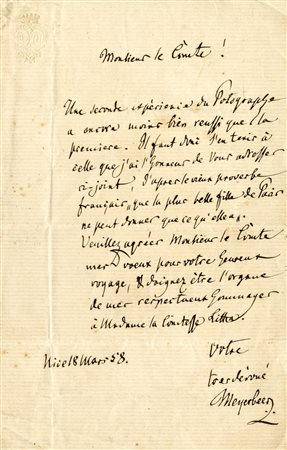 Monsieur le Comte!
Une seconde expérience du Photographe
a encore moins bien reussi que la
premiere. Il faut donc s'en tenir à
celle que j'ai l'honneur de Vous
ci-joint, d'apres le vieux proverbe
français, que la plus belle fille de Paris
ne peut donner que ce qu'elle a.
Veuillez agréer Monsieur le Comte
mes voeux pour votre heureux
voyage, & daignez être l'organe
de mes respectueux hommages
à Madame la Comtesse Litta
Votre
tres dévoué
Meyerbeer
Nice 18 Mars 58.